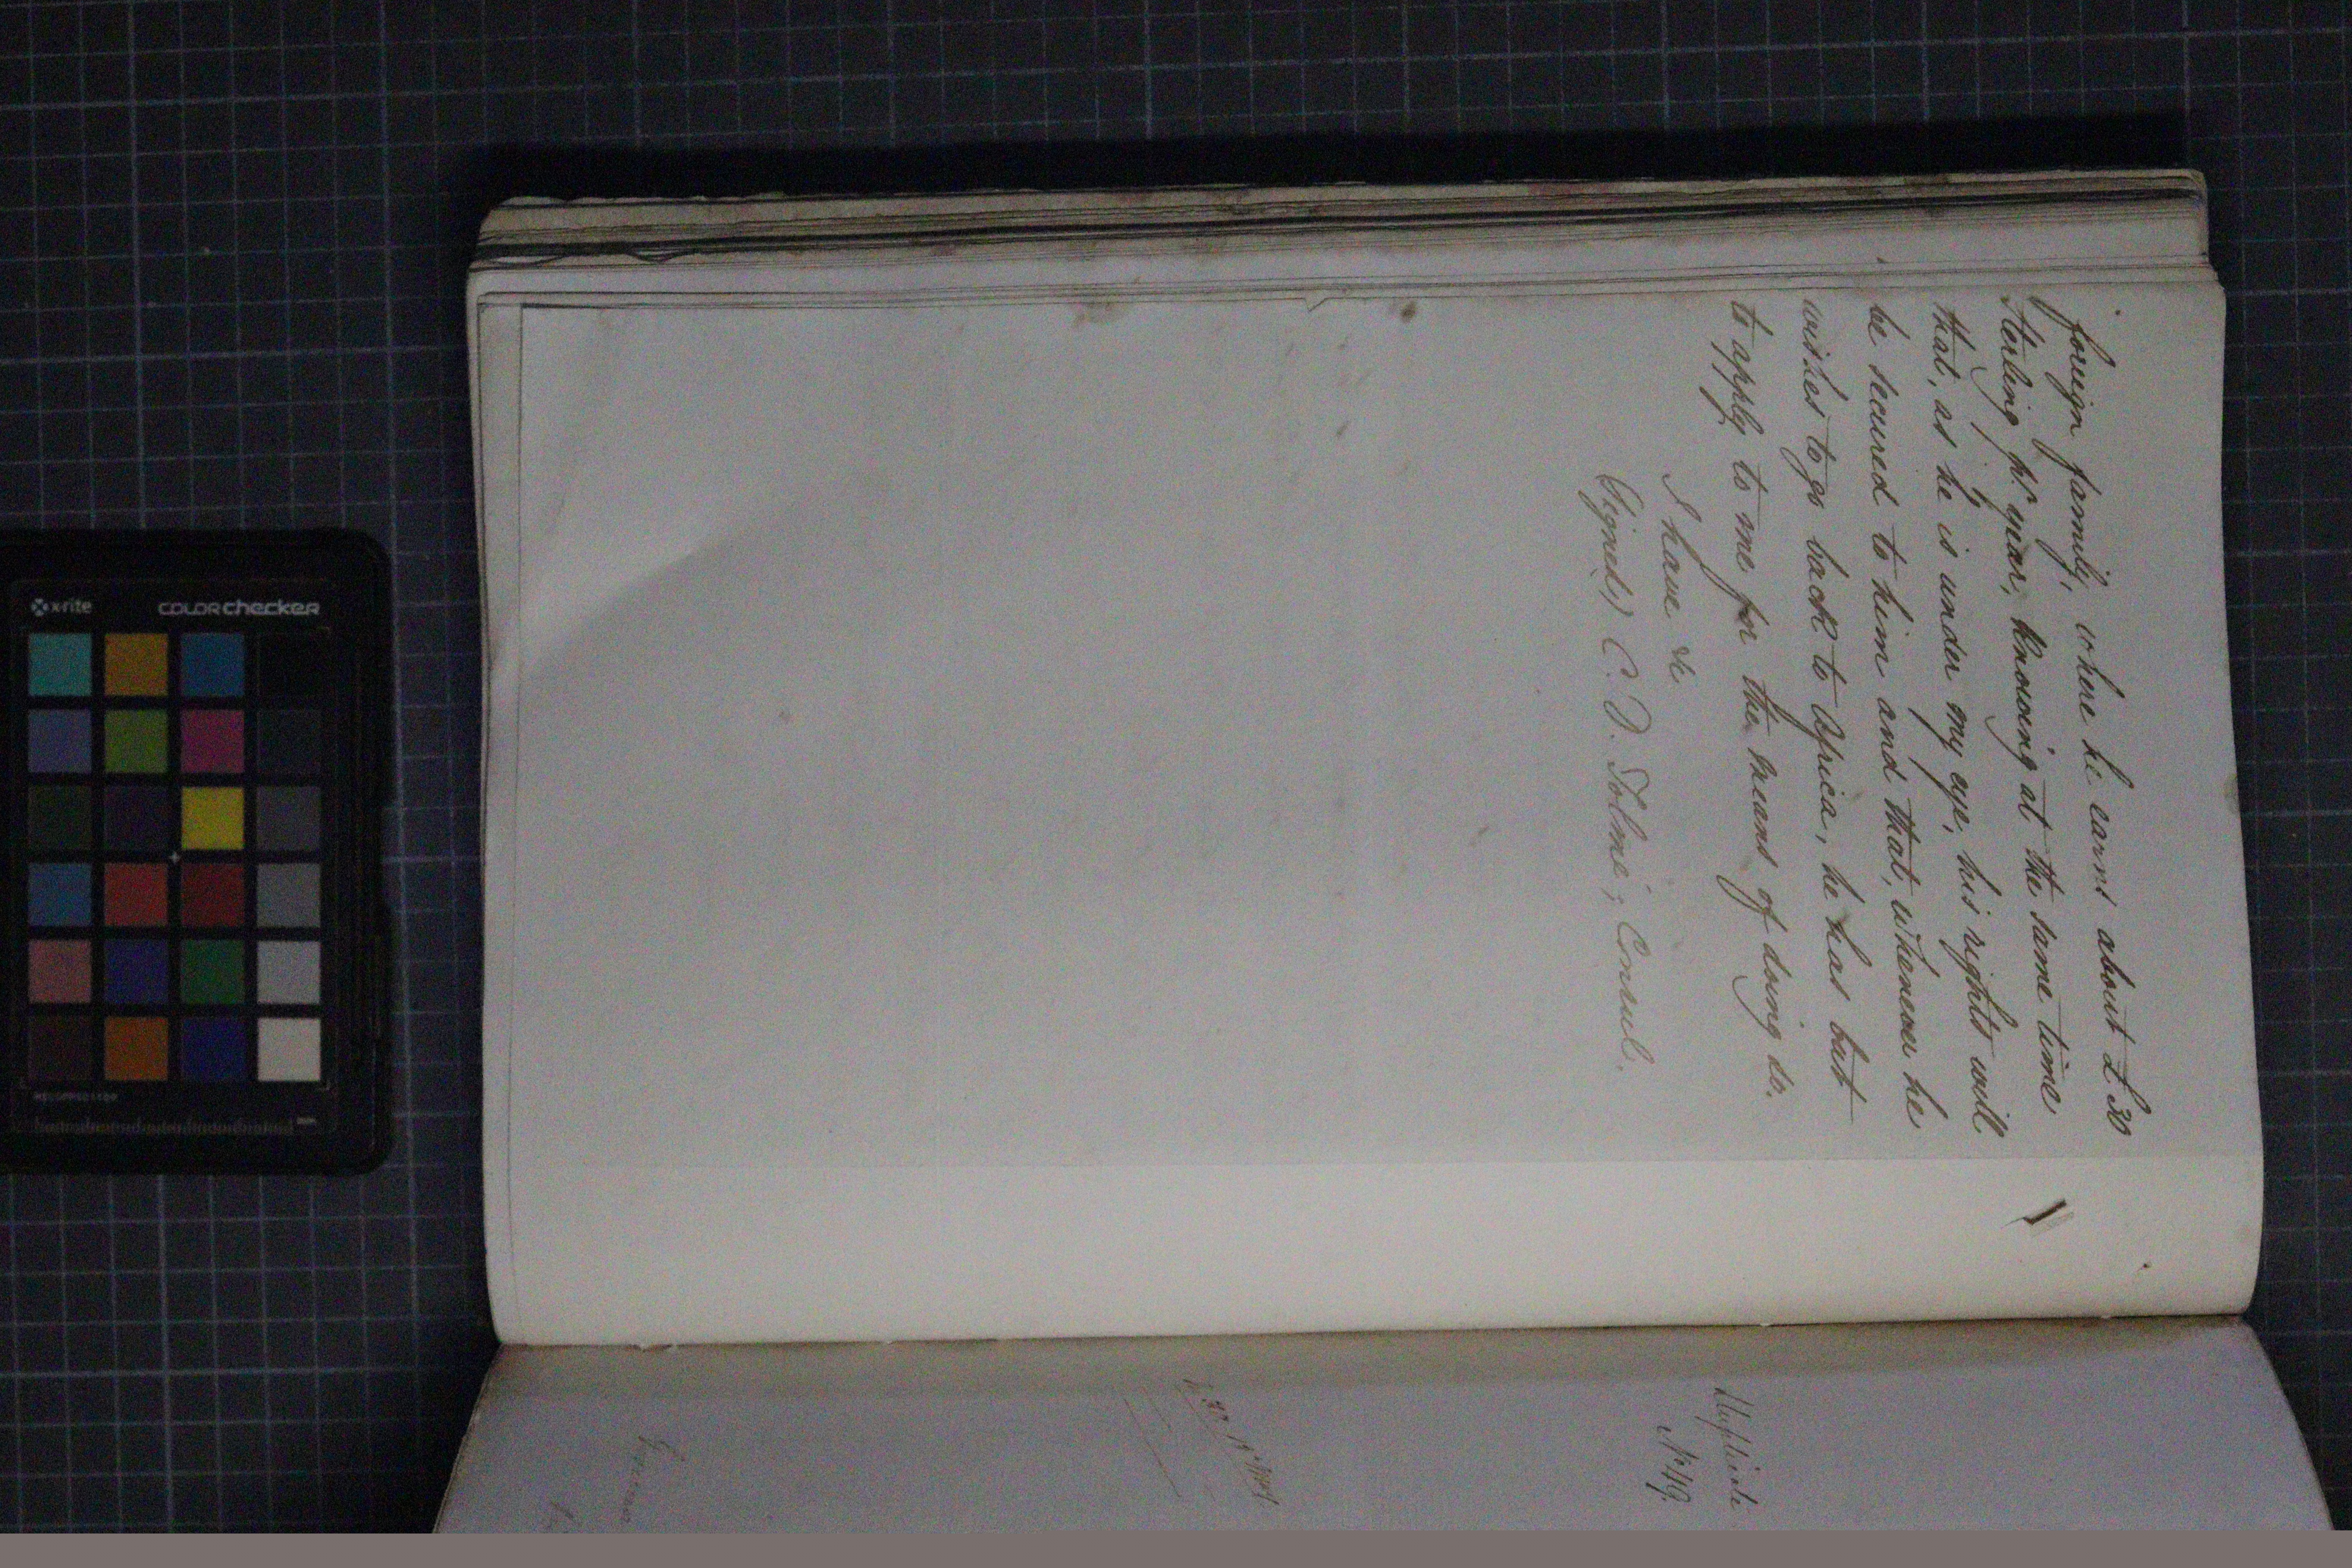 foreign family, where he earns about £30
sterling pr. year; knowing at the same time
that, as he is under my eye, his rights will
be secured to him and that, whenever he
wishes to go back to Africa, he has but
to apply to me for the means of doing so.
I have &c
(Signed) C. D. Tolmé; Consul.
Duplicate
No. 49.
x-rite
colorchecker